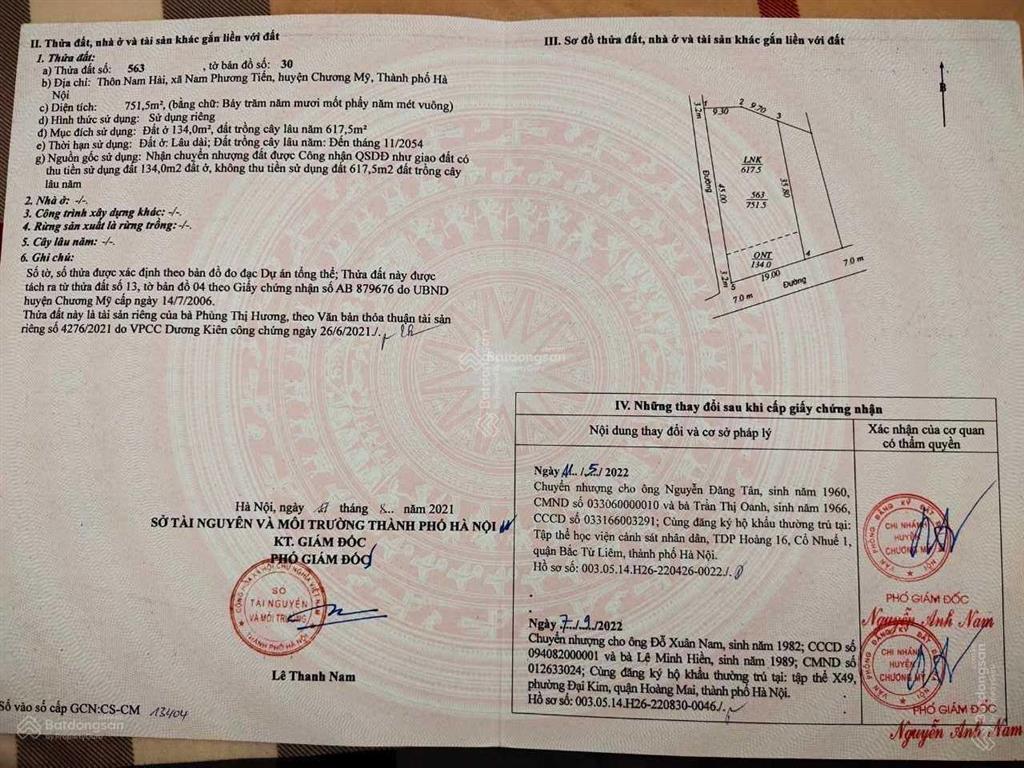 II. Thửa đất, nhà ở và tài sản khác gắn liền với đất
1. Thửa đất:
a) Thửa đất số: 563 , tờ bản đồ số: 30
b) Địa chỉ: Thôn Nam Hài, xã Nam Phương Tiến, huyện Chương Mỹ, Thành phố Hà
Nội
c) Diện tích: 751,5m², (bằng chữ: Bảy trăm năm mươi mốt phẩy năm mét vuông)
d) Hình thức sử dụng: Sử dụng riêng
đ) Mục đích sử dụng: Đất ở 134,0m², đất trồng cây lâu năm 617,5m²
e) Thời hạn sử dụng: Đất ở: Lâu dài; Đất trồng cây lâu năm: Đến tháng 11/2054
g) Nguồn gốc sử dụng: Nhận chuyển nhượng đất được Công nhận QSDĐ như giao đất có
thu tiền sử dụng đất 134,0m2 đất ở, không thu tiền sử dụng đất 617,5m2 đất trồng cây
lâu năm
2. Nhà ở: -/-.
3. Công trình xây dựng khác: -/-.
4. Rừng sản xuất là rừng trồng: -/-.
5. Cây lâu năm: -/-.
6. Ghi chú:
Số tờ, số thửa được xác định theo bản đồ đo đạc Dự án tổng thể; Thửa đất này được
tách ra từ thửa đất số 13, tờ bản đồ 04 theo Giấy chứng nhận số AB 879676 do UBND
huyện Chương Mỹ cấp ngày 14/7/2006.
Thửa đất này là tài sản riêng của bà Phùng Thị Hương, theo Văn bản thỏa thuận tài sản
riêng số 4276/2021 do VPCC Dương Kiên công chứng ngày 26/6/2021./.
Hà Nội, ngày tháng năm 2021
SỞ TÀI NGUYÊN VÀ MÔI TRƯỜNG THÀNH PHỐ HÀ NỘI
KT. GIÁM ĐỐC
PHÓ GIÁM ĐỐC
SỞ
TÀI NGUYÊN
VÀ MÔI TRƯỜNG
THÀNH PHỐ HÀ NỘI
Lê Thanh Nam
Số vào sổ cấp GCN:CS-CM 13404
III. Sơ đồ thửa đất, nhà ở và tài sản khác gắn liền với đất
B
3.2m
1
9.30
2
9.70
3
LNK
617.5
Đường
45.00
35.80
563
751.5
ONT
134.0
4
3.2m
5
19.00
7.0 m
Đường
7.0 m
IV. Những thay đổi sau khi cấp giấy chứng nhận
Nội dung thay đổi và cơ sở pháp lý
Xác nhận của cơ quan
có thẩm quyền
Ngày 11../5../2022
Chuyển nhượng cho ông Nguyễn Đăng Tân, sinh năm 1960,
CMND số 033060000010 và bà Trần Thị Oanh, sinh năm 1966,
CCCD số 033166003291; Cùng đăng ký hộ khẩu thường trú tại:
Tập thể học viện cảnh sát nhân dân, TDP Hoàng 16, Cổ Nhuế 1,
quận Bắc Từ Liêm, thành phố Hà Nội.
Hồ sơ số: 003.05.14.H26-220426-0022./.
CHI NHÁNH
HUYỆN
CHƯƠNG MỸ
PHÓ GIÁM ĐỐC
Nguyễn Anh Nam
Ngày 7../9../2022
Chuyển nhượng cho ông Đỗ Xuân Nam, sinh năm 1982; CCCD số
094082000001 và bà Lê Minh Hiền, sinh năm 1989; CMND số
012633024; Cùng đăng ký hộ khẩu thường trú tại: tập thể X49,
phường Đại Kim, quận Hoàng Mai, thành phố Hà Nội.
Hồ sơ số: 003.05.14.H26-220830-0046./.
CHI NHÁNH
HUYỆN
CHƯƠNG MỸ
PHÓ GIÁM ĐỐC
Nguyễn Anh Nam
Batdongsan
Batdongsan
Batdongsan